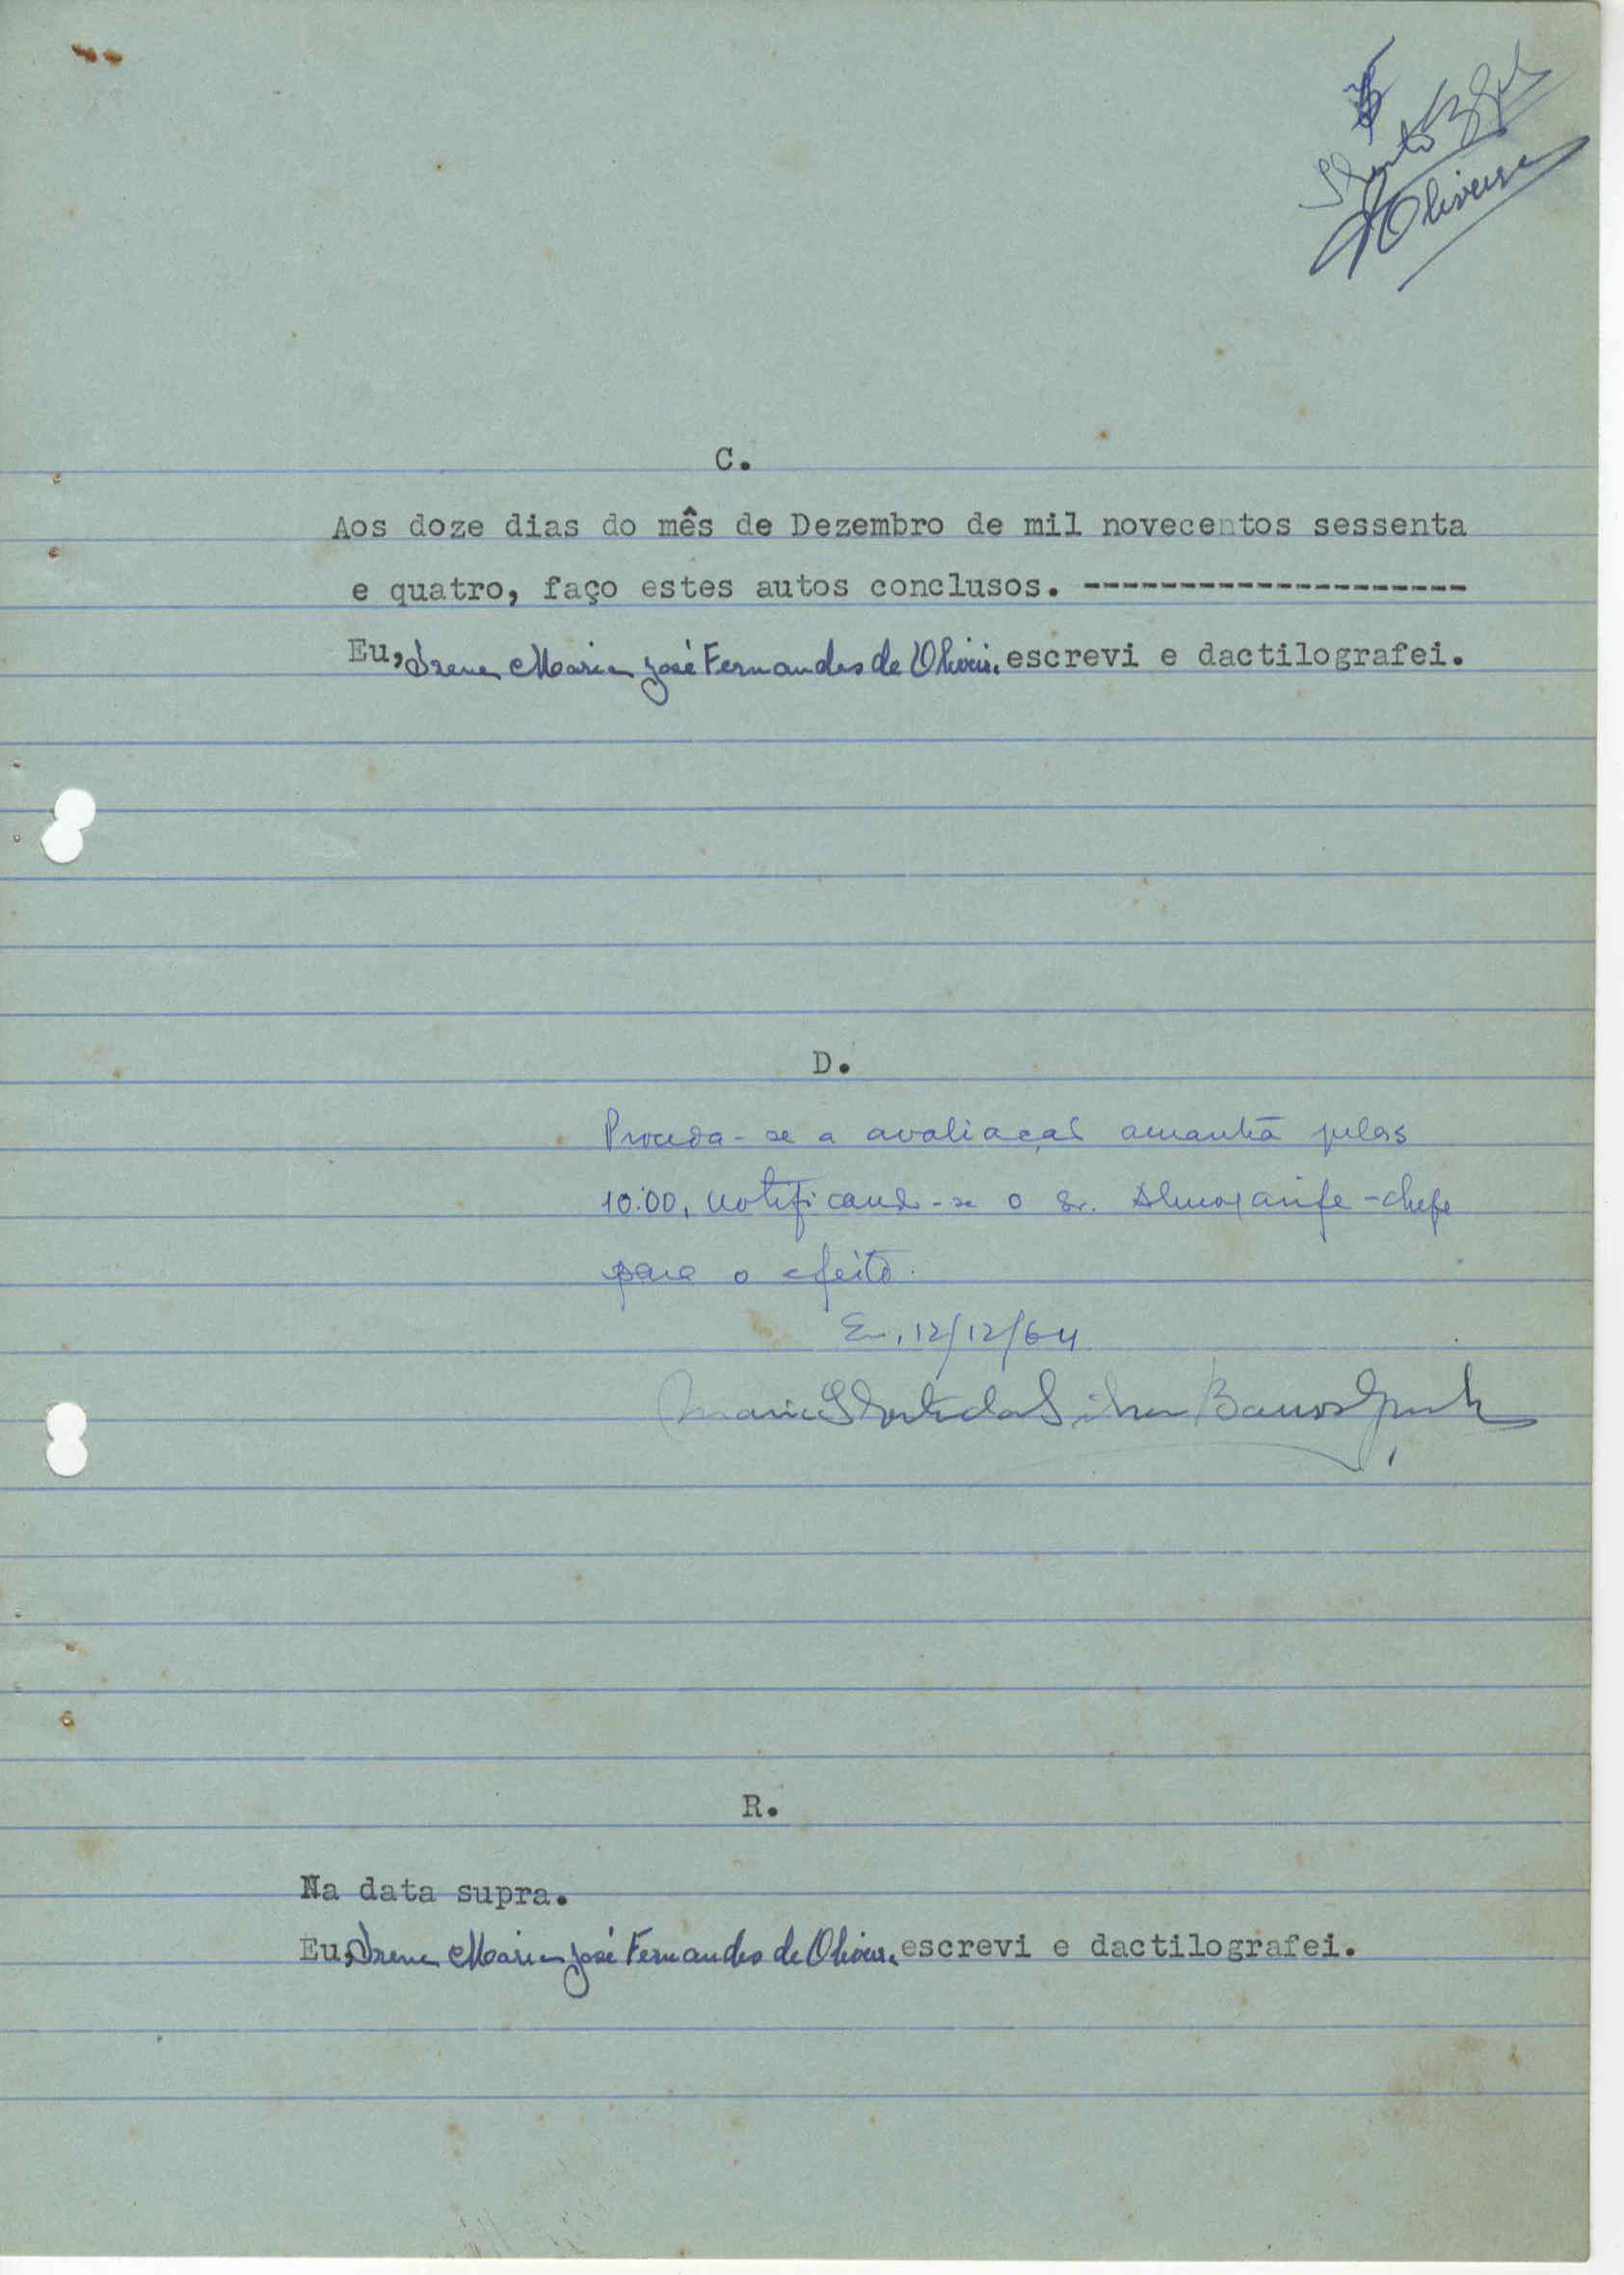 Oliveira
C.
Aos doze dias do mês de Dezembro de mil novecentos sessenta
e quatro, faço estes autos conclusos. --------------------
Eu, Irene Maria José Fernandes de Oliveira, escrevi e dactilografei.
D.
Proceda-se a avaliação amanhã pelas
10:00, notificando-se o Sr. Almoxarife-chefe
para o efeito.
Em, 12/12/64
da Silva Barros
R.
Na data supra.
Eu, Irene Maria José Fernandes de Oliveira, escrevi e dactilografei.